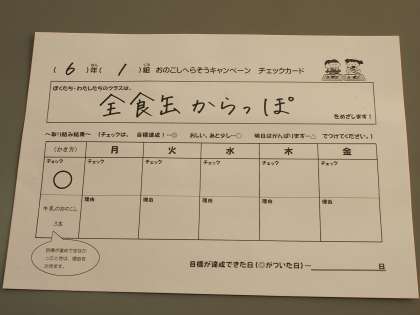 ( 6 )年( 1 )組 おのこしへらそうキャンペーン チェックカード
ぼくたち・わたしたちのクラスは、
全食缶からっぽ
をめざします!
〜取り組み結果〜 (チェックは、 目標達成!…◎ おしい、あと少し…○ 明日はがんばります…△ でつけてください。)
(かき方) 月 火 水 木 金
チェック チェック チェック チェック チェック チェック
○
理由 理由 理由 理由 理由
牛乳のおのこし
3本
目標が達成できなか
ったときは、理由を
お書きます。
目標が達成できた日(◎がついた日)…
日